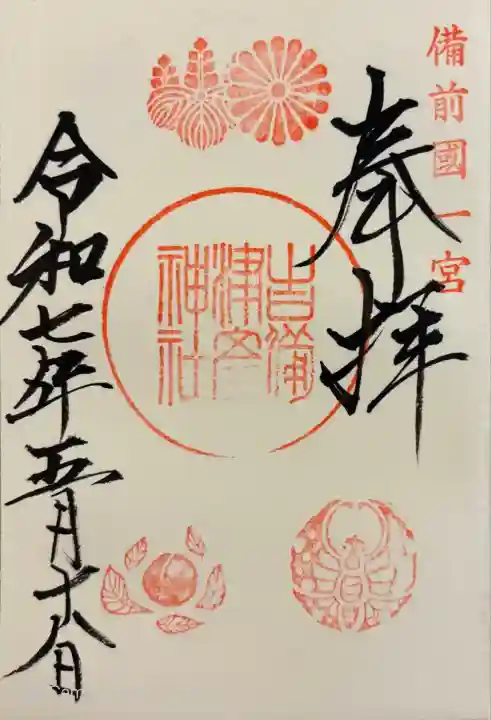 備前國一宮
奉拝
吉備
津彦
神社
令和七年五月十八日